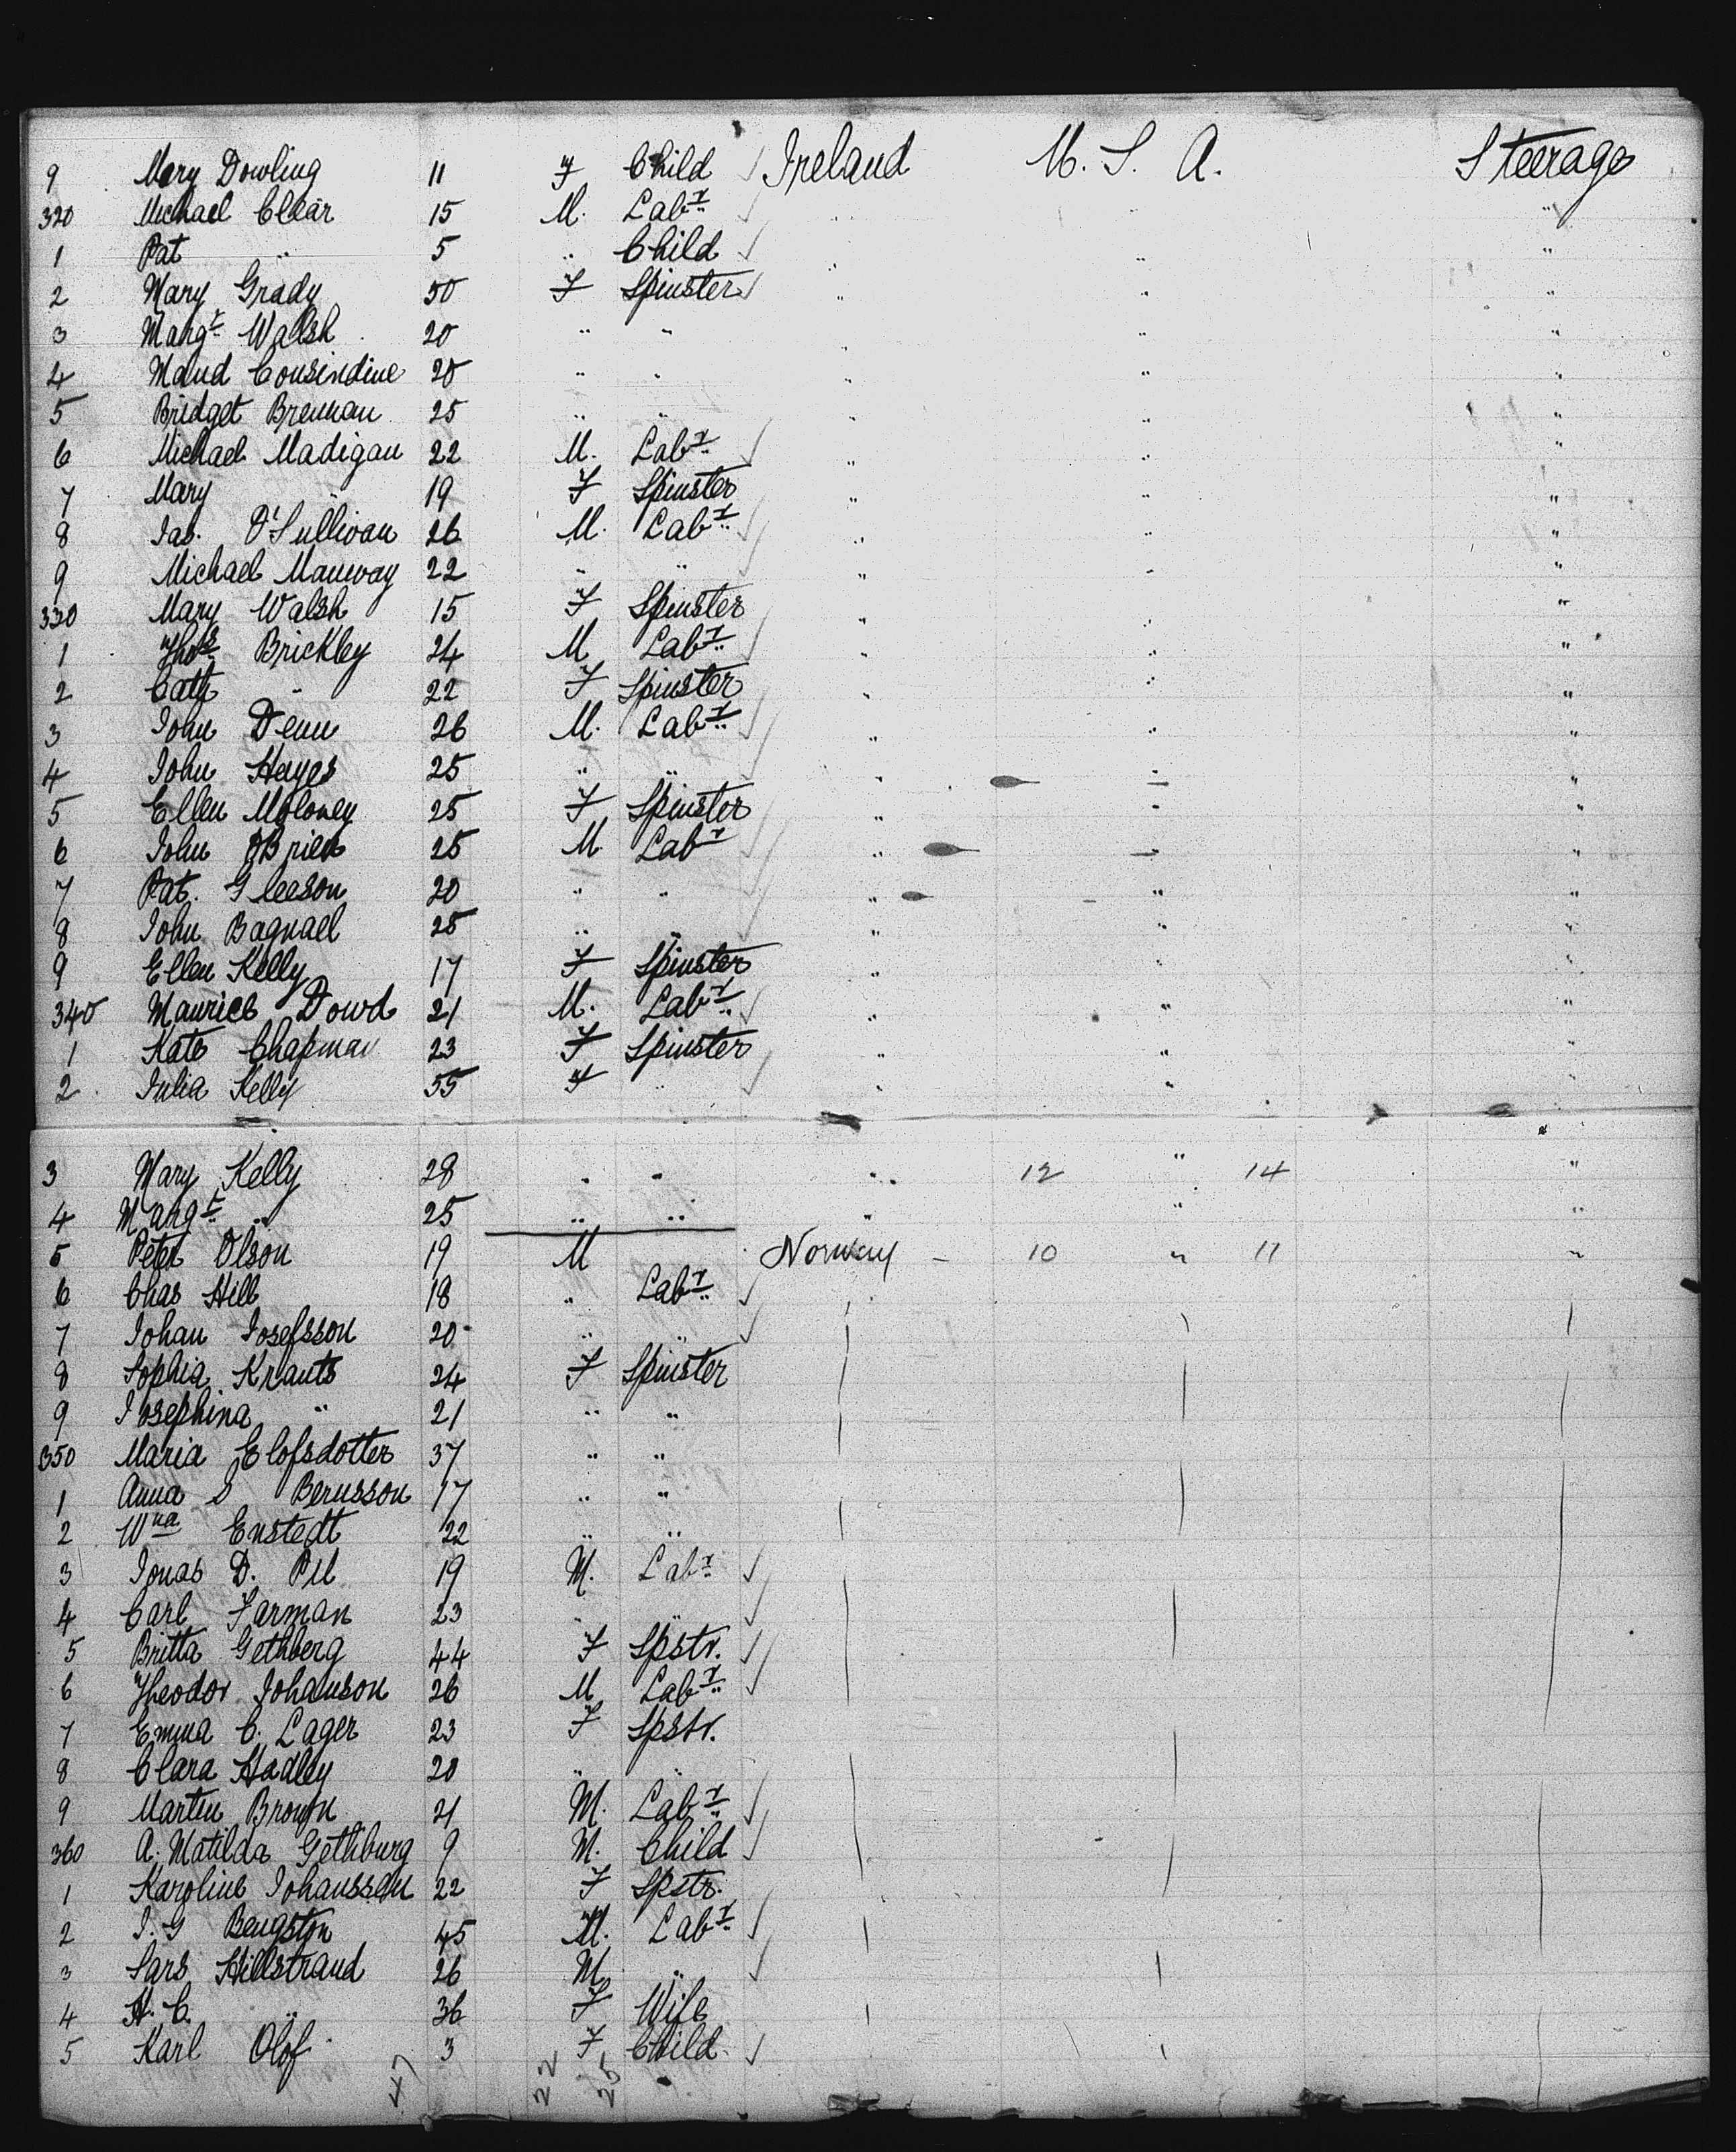 9 Mary Dowling 11 F Child Ireland U. S. A. Steerage
320 Michael Clear 15 M. Labr " " "
1 Pat " 5 " Child " " "
2 Mary Grady 50 F Spinster " " "
3 Margt Walsh 20 " " " " "
4 Maud Cousindine 20 " " " " "
5 Bridget Brennan 25 " " " " "
6 Michael Madigan 22 M. Labr " " "
7 Mary " 19 F Spinster " " "
8 Jas. O'Sullivan 26 M. Labr " " "
9 Michael 22 " " " " "
330 Mary Walsh 15 F Spinster " " "
1 Thos Brickley 24 M Labr " " "
2 Cath " 22 F Spinster " " "
3 John Denn 26 M. Labr " " "
4 John Hayes 25 " " " " "
5 Ellen Moloney 25 F Spinster " " "
6 John OBrien 25 M. Labr " " "
7 Pat. Gleeson 20 " " " " "
8 John Bagnall 25 " " " " "
9 Ellen Kelly 17 F Spinster " " "
340 Maurice Dowd 21 M. Labr " " "
1 Kate Chapman 23 F Spinster " " "
2 Julia Kelly 55 F " " " "
3 Mary Kelly 28 " " " 12 " 14 "
4 Margt " 25 " " " " "
5 Peter Olson 19 M Norway - 10 " 11 "
6 Chas Hill 18 " Labr
7 Johan Josefsson 20 " "
8 Sophia Krants 24 F Spinster
9 Josephina " 21 " "
350 Maria Elofsdotter 37 " "
1 Anna S Berusson 17 " "
2 Wna Enstedt 22 " "
3 Jonas D. Pil 19 M. Labr
4 Carl Farman 23 " "
5 Britta Gethberg 44 F Spstr.
6 Theodor Johanson 26 M Labr
7 Emma C. Lager 23 F Spstr.
8 Clara Hadley 20 " "
9 Martin Brown 21 M. Labr
360 A. Matilda Gethburg 9 M. Child
1 Karoline Johanssen 22 F Spstr.
2 J. G Bengston 45 M. Labr
3 Lars Hillstrand 26 M "
4 H. C. " 36 F Wife
5 Karl Olof 3 F Child
47 22 25